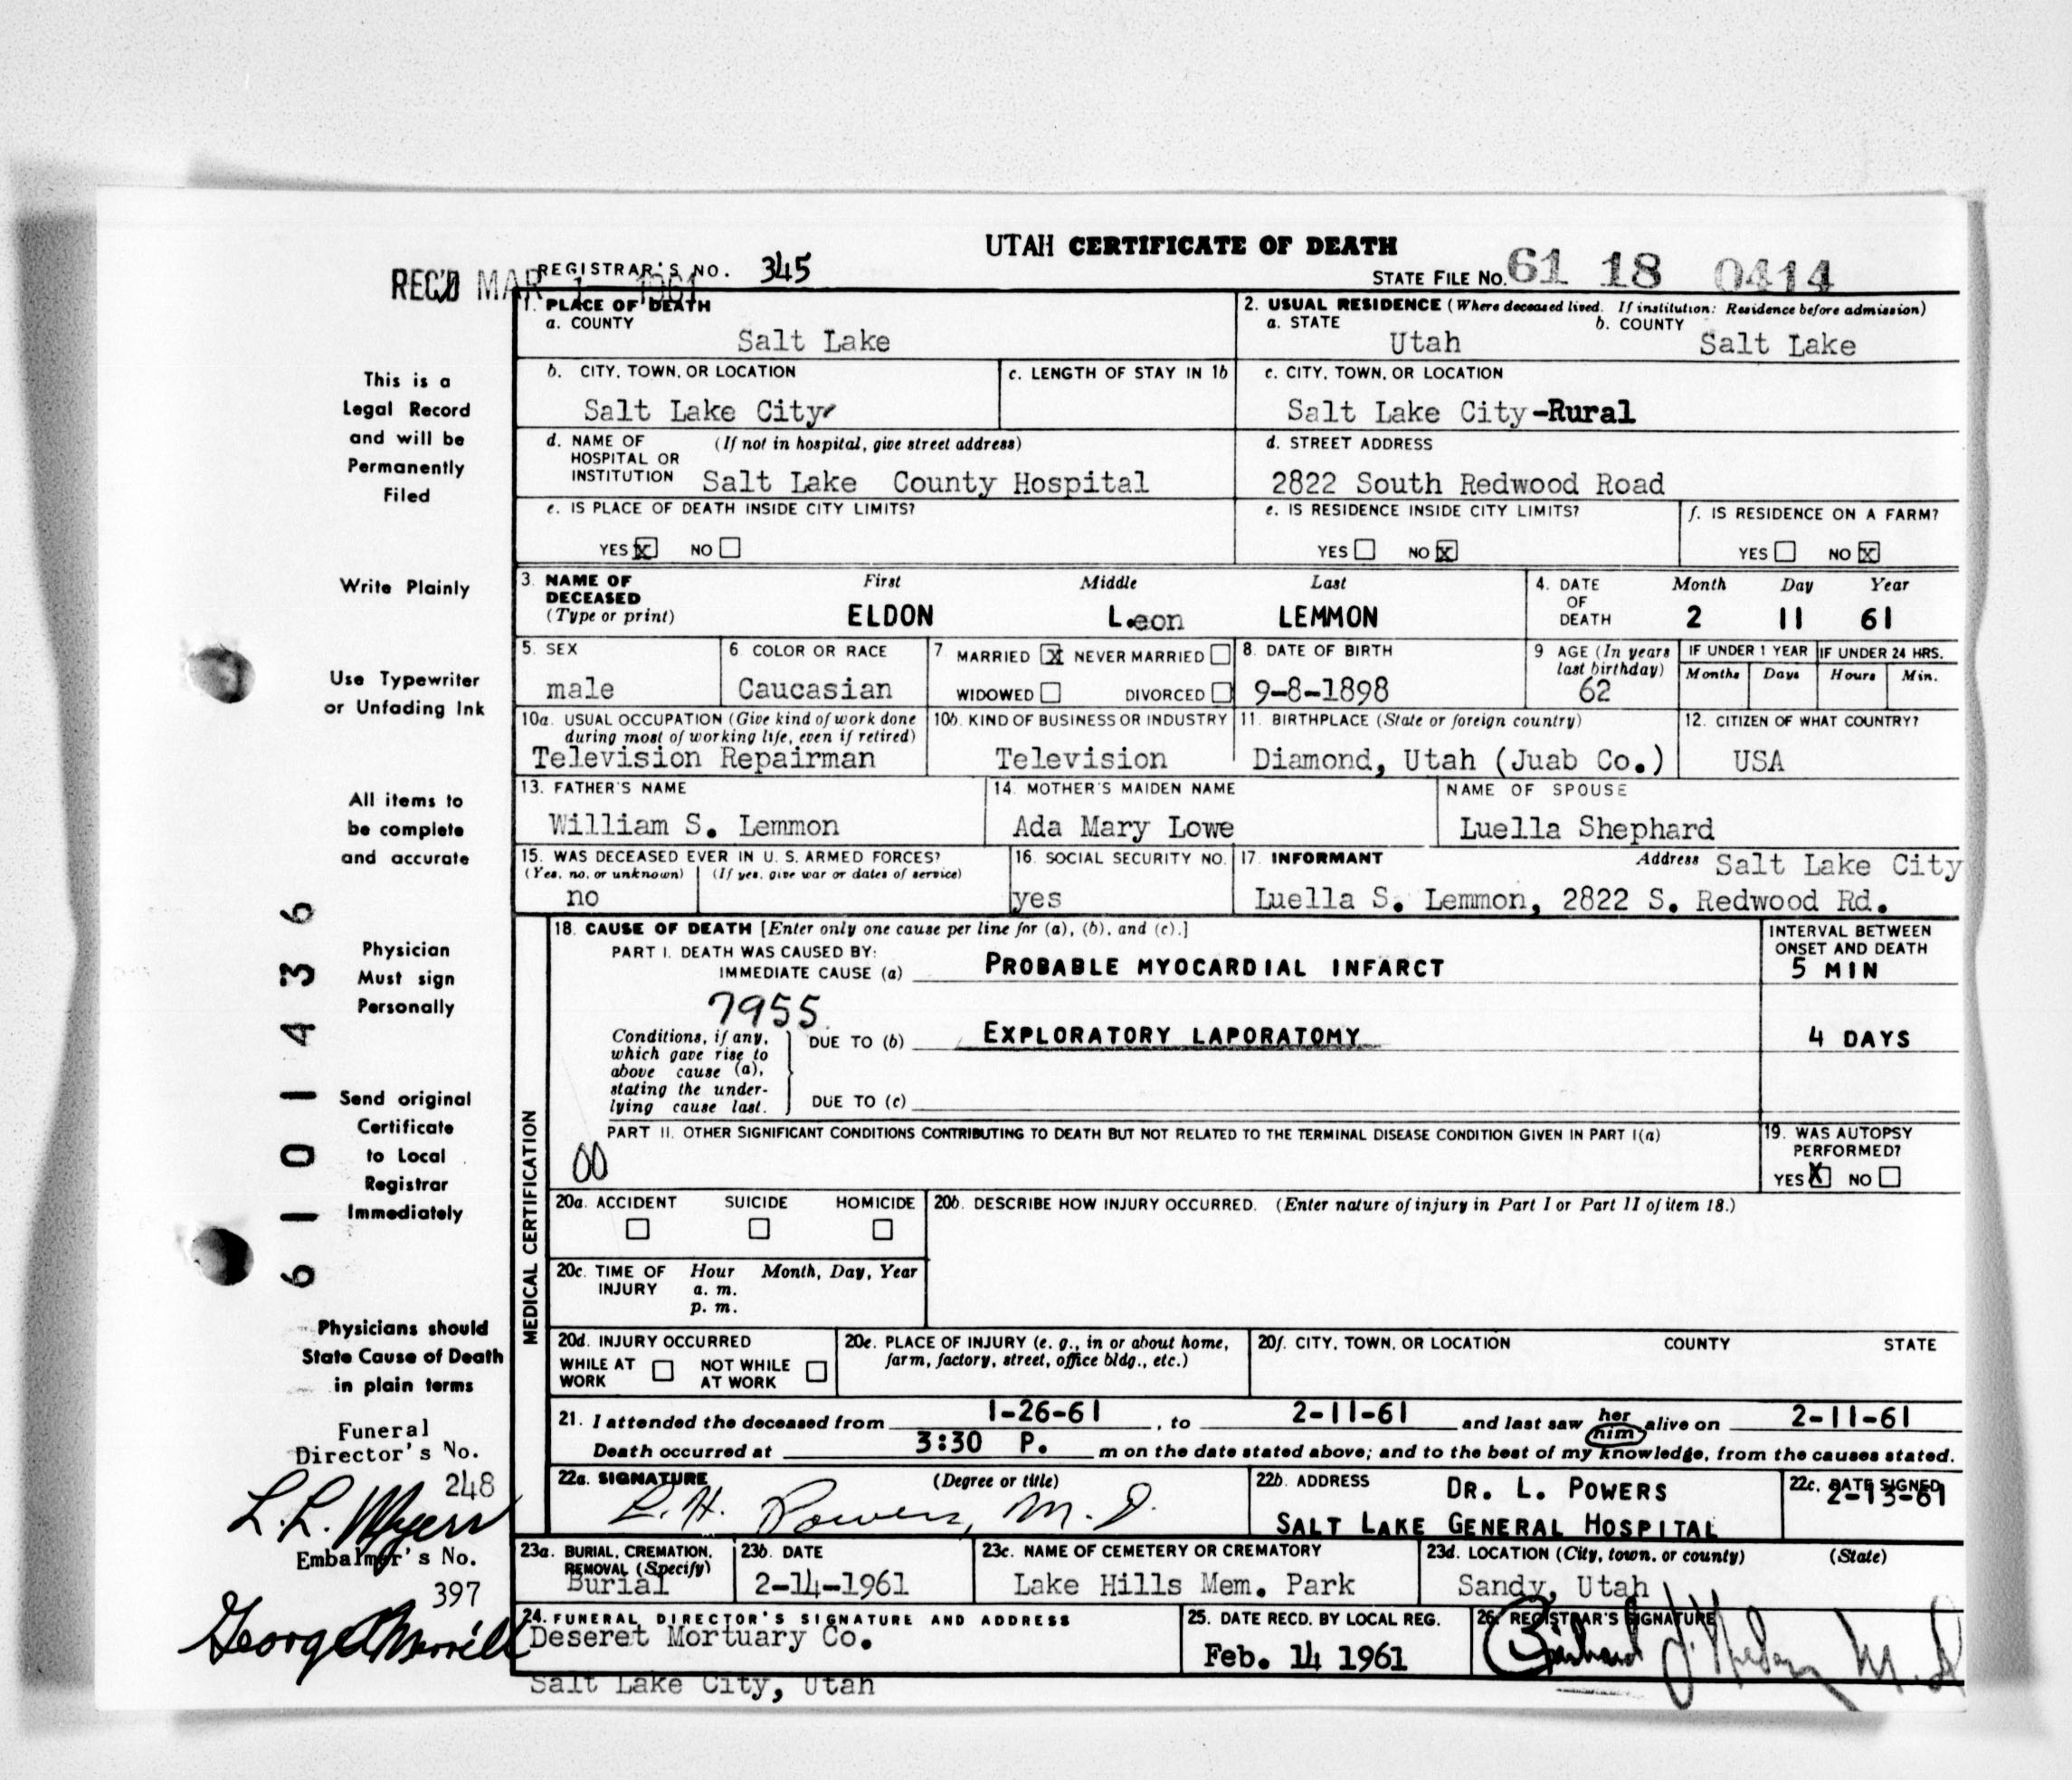 UTAH CERTIFICATE OF DEATH
REC'D MAR 1 1961
REGISTRAR'S NO. 345
STATE FILE NO. 61 18 0414
1. PLACE OF DEATH
a. COUNTY
Salt Lake
2. USUAL RESIDENCE (Where deceased lived. If institution: Residence before admission)
a. STATE b. COUNTY
Utah Salt Lake
b. CITY, TOWN, OR LOCATION
Salt Lake City
c. LENGTH OF STAY IN 1b
c. CITY, TOWN, OR LOCATION
Salt Lake City-Rural
d. NAME OF (If not in hospital, give street address)
HOSPITAL OR
INSTITUTION Salt Lake County Hospital
d. STREET ADDRESS
2822 South Redwood Road
e. IS PLACE OF DEATH INSIDE CITY LIMITS?
YES X NO
e. IS RESIDENCE INSIDE CITY LIMITS?
YES NO X
f. IS RESIDENCE ON A FARM?
YES NO X
3. NAME OF First Middle Last
DECEASED
(Type or print) ELDON L.eon LEMMON
4. DATE Month Day Year
OF
DEATH 2 11 61
5. SEX
male
6 COLOR OR RACE
Caucasian
7 MARRIED X NEVER MARRIED
WIDOWED DIVORCED
8. DATE OF BIRTH
9-8-1898
9 AGE (In years
last birthday)
62
IF UNDER 1 YEAR
Months Days
IF UNDER 24 HRS.
Hours Min.
10a. USUAL OCCUPATION (Give kind of work done
during most of working life, even if retired)
Television Repairman
10b. KIND OF BUSINESS OR INDUSTRY
Television
11. BIRTHPLACE (State or foreign country)
Diamond, Utah (Juab Co.)
12. CITIZEN OF WHAT COUNTRY?
USA
13. FATHER'S NAME
William S. Lemmon
14. MOTHER'S MAIDEN NAME
Ada Mary Lowe
NAME OF SPOUSE
Luella Shephard
15. WAS DECEASED EVER IN U. S. ARMED FORCES?
(Yes, no, or unknown) (If yes, give war or dates of service)
no
16. SOCIAL SECURITY NO.
yes
17. INFORMANT Address Salt Lake City
Luella S. Lemmon, 2822 S. Redwood Rd.
MEDICAL CERTIFICATION
18. CAUSE OF DEATH [Enter only one cause per line for (a), (b), and (c).]
PART I. DEATH WAS CAUSED BY:
IMMEDIATE CAUSE (a) PROBABLE MYOCARDIAL INFARCT
INTERVAL BETWEEN
ONSET AND DEATH
5 MIN
7955
Conditions, if any,
which gave rise to
above cause (a),
stating the under-
lying cause last.
DUE TO (b) EXPLORATORY LAPORATOMY
4 DAYS
DUE TO (c)
PART II. OTHER SIGNIFICANT CONDITIONS CONTRIBUTING TO DEATH BUT NOT RELATED TO THE TERMINAL DISEASE CONDITION GIVEN IN PART I(a)
00
19. WAS AUTOPSY
PERFORMED?
YES X NO
20a. ACCIDENT SUICIDE HOMICIDE
20b. DESCRIBE HOW INJURY OCCURRED. (Enter nature of injury in Part I or Part II of item 18.)
20c. TIME OF Hour Month, Day, Year
INJURY a. m.
p. m.
20d. INJURY OCCURRED
WHILE AT NOT WHILE
WORK AT WORK
20e. PLACE OF INJURY (e. g., in or about home,
farm, factory, street, office bldg., etc.)
20f. CITY, TOWN, OR LOCATION COUNTY STATE
21. I attended the deceased from 1-26-61, to 2-11-61 and last saw her him alive on 2-11-61
Death occurred at 3:30 P. m on the date stated above; and to the best of my knowledge, from the causes stated.
22a. SIGNATURE (Degree or title)
L. H. Powers, M. D.
22b. ADDRESS DR. L. POWERS
SALT LAKE GENERAL HOSPITAL
22c. DATE SIGNED
2-13-61
23a. BURIAL, CREMATION,
REMOVAL (Specify)
Burial
23b. DATE
2-14-1961
23c. NAME OF CEMETERY OR CREMATORY
Lake Hills Mem. Park
23d. LOCATION (City, town, or county) (State)
Sandy, Utah
24. FUNERAL DIRECTOR'S SIGNATURE AND ADDRESS
Deseret Mortuary Co.
Salt Lake City, Utah
25. DATE RECD. BY LOCAL REG.
Feb. 14 1961
26. REGISTRAR'S SIGNATURE
M. D
This is a
Legal Record
and will be
Permanently
Filed
Write Plainly
Use Typewriter
or Unfading Ink
All items to
be complete
and accurate
Physician
Must sign
Personally
Send original
Certificate
to Local
Registrar
Immediately
Physicians should
State Cause of Death
in plain terms
Funeral
Director's No.
248
L. L. Myers
Embalmer's No.
397
George Merrill
6101436